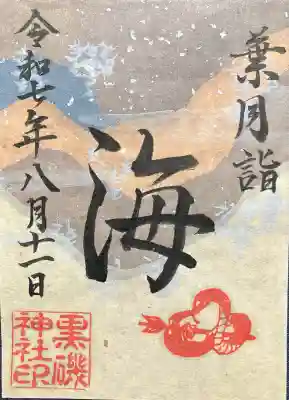 葉月詣
海
令和七年八月十一日
黒磯
神社印